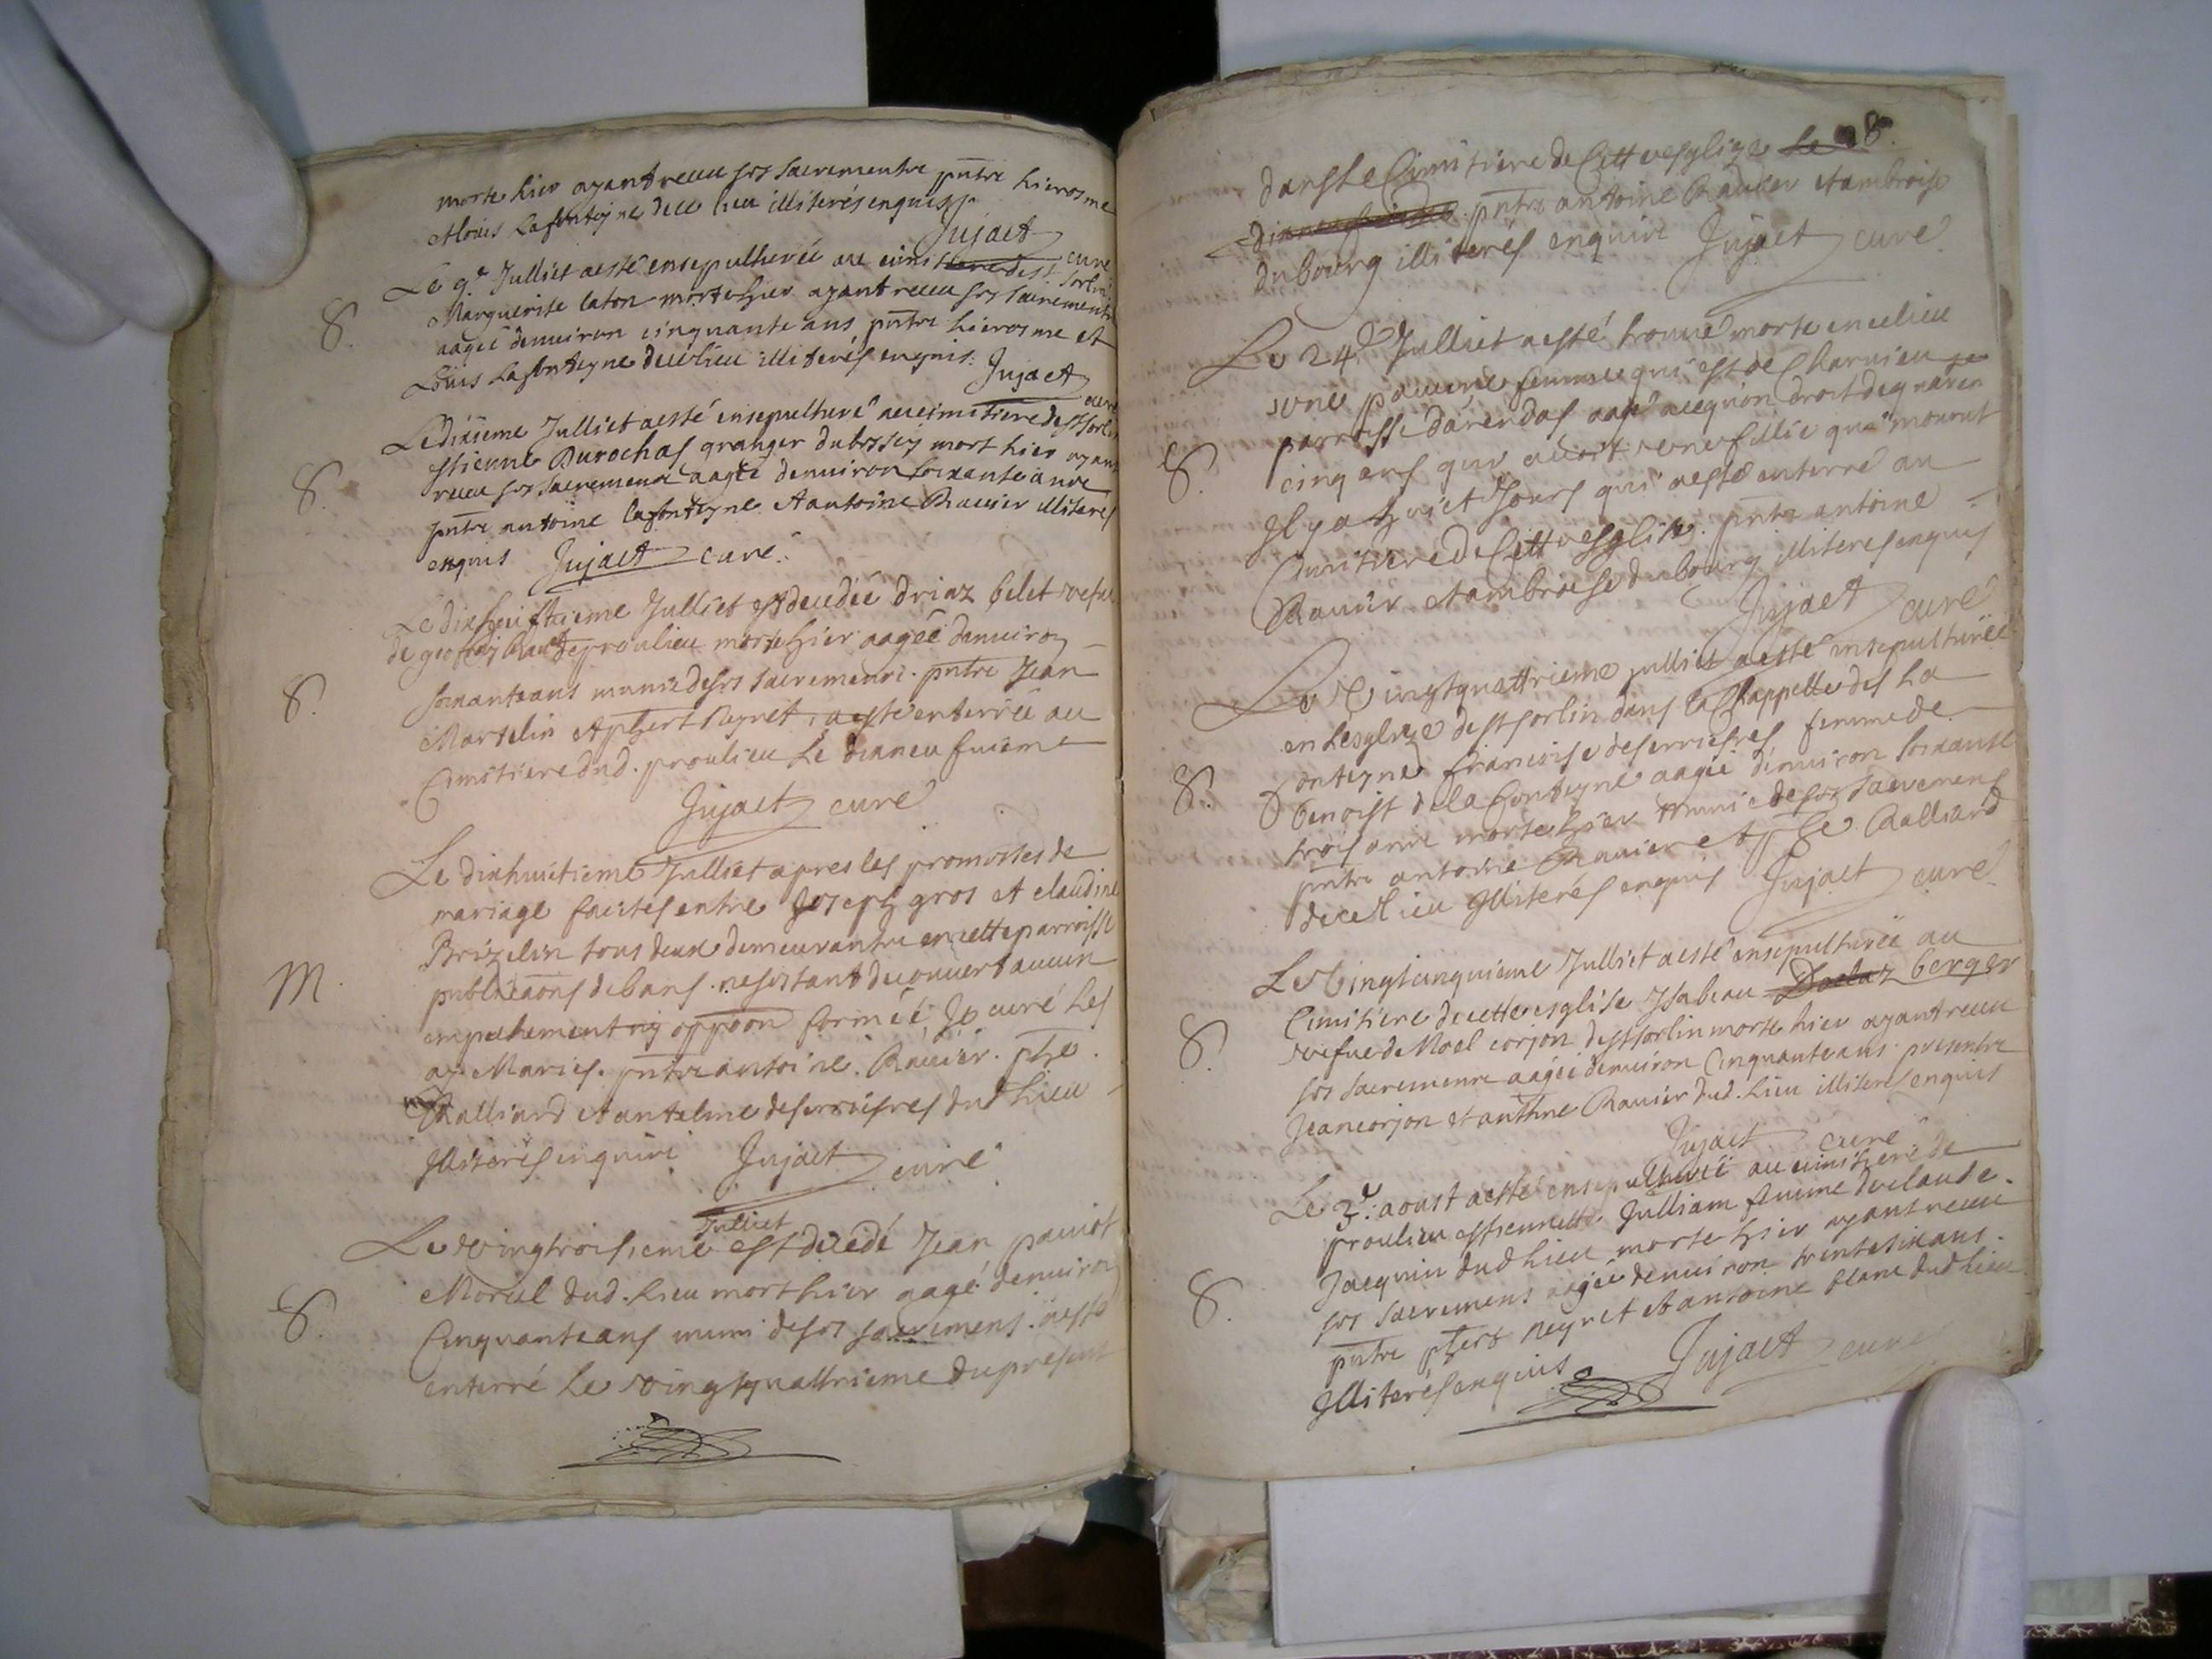 morte hier ayant receu ses sacrementz pntz hierosme
et louis lafonteyne de ce lieu illiterés enquis
Jujaet curé
Le 9e Julliet a esté ensepulturée au cimitiere de st sorlin
S. Marguerite laton morte hier ayant receu ses sacrementz
aagée denuiron cinquante ans pntz hierosme et
Loüis Lafonteyne de ce lieu illiterés enquis. Jujaet curé
Le dixieme Julliet a esté ensepulturé au cimitiere de st sorlin
S. Estienne Durochas granger du bessey mort hier ayant
receu ses sacremens aagée denuiron soixante ans
pntz antoine lafonteyne et antoine Rauier illiteres
enquis Jujaet curé.
Le dixhuictieme Julliet est decedée driaz belet vefue
de de proulieu morte hier aagée denuiron
S. soixante ans munie de ses sacremens. pntz Jean
Martelin et phert Reynet, a esté enterrée au
Cimitiere dud. proulieu Le dixneufuieme
Jujaet curé
Le dixhuictieme Julliet apres les promesses de
mariage faictes entre Joseph gros et claudine
Brizelin tous deux demeurantz en cette parroisse
M. publicaons de bans. ne sestant decouuert aucun
empechement ny oppoon formée, Je curé les
ay Mariés. pntz antoine. Rauier. phe.
Ralliard et antelme deserriesres dud lieu
Illiterés enquis Jujaet curé
Julliet
Le vingtroisieme est decedé Jean pauiot
Morcel dud. lieu mort hier aagé denuiron
S. Cinquante ans muni de ses sacremens. a esté
enterré Le vingtquattrieme du present
8.
dans le Cimitiere de Cette esglize Le
pntz antoine Rauier et ambroise
dubourg illiterés enquis Jujaet curé
Le 24e Julliet a esté trouué morte en ce lieu
une pauure femme qui est de Charuieu
parroisse darendas aagé a ce quon croit de quarante
S. cinq ans qui auoit une fillie qui mourut
Il y a huict Jours qui a esté enterré au
Cimitiere de Cette esglise. pntz antoine
Rauier et ambroise dubourg illiteres enquis
Jujaet curé
Le Vingtquattrieme julliet a esté ensepulturée
en Lesglize de st sorlin dans la Chappelle des La
S. fonteyne francoise deserriesres femme de
benoist de la fonteyne aagée denuiron soixante
trois ans morte hier munie de ses sacremens
pntz antoine Rauier et phe Ralliard
de ce lieu Illiterés enquis Jujaet curé
Le Vingtcinquieme Julliet a esté ensepulturée au
Cimitiere de cette esglise Ysabeau Doelaz berger
S. vefue de Noel corjon de st sorlin morte hier ayant receu
ses sacremens aagée denuiron Cinquante ans presentz
Jean corjon et anthne Rauier dud. lieu illiteres enquis
Jujaet curé
Le 3e. aoust a esté ensepulturée au cimitiere de
proulieu estiennette Julliam femme de claude.
Jacquin dud lieu morte hier ayant receu
S. ses sacremens aagée denuiron trente six ans.
pntz phert Reynet et antoine blanc dud lieu
Illiterés enquis Jujaet curé